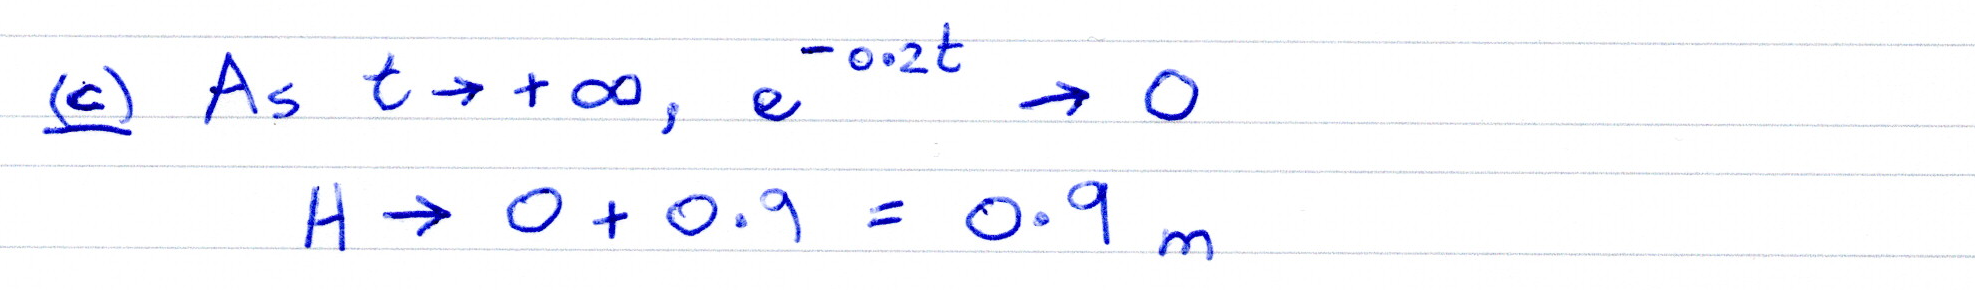 (c) As t → +∞, e^{-0.2t} → 0
H → 0 + 0.9 = 0.9 m